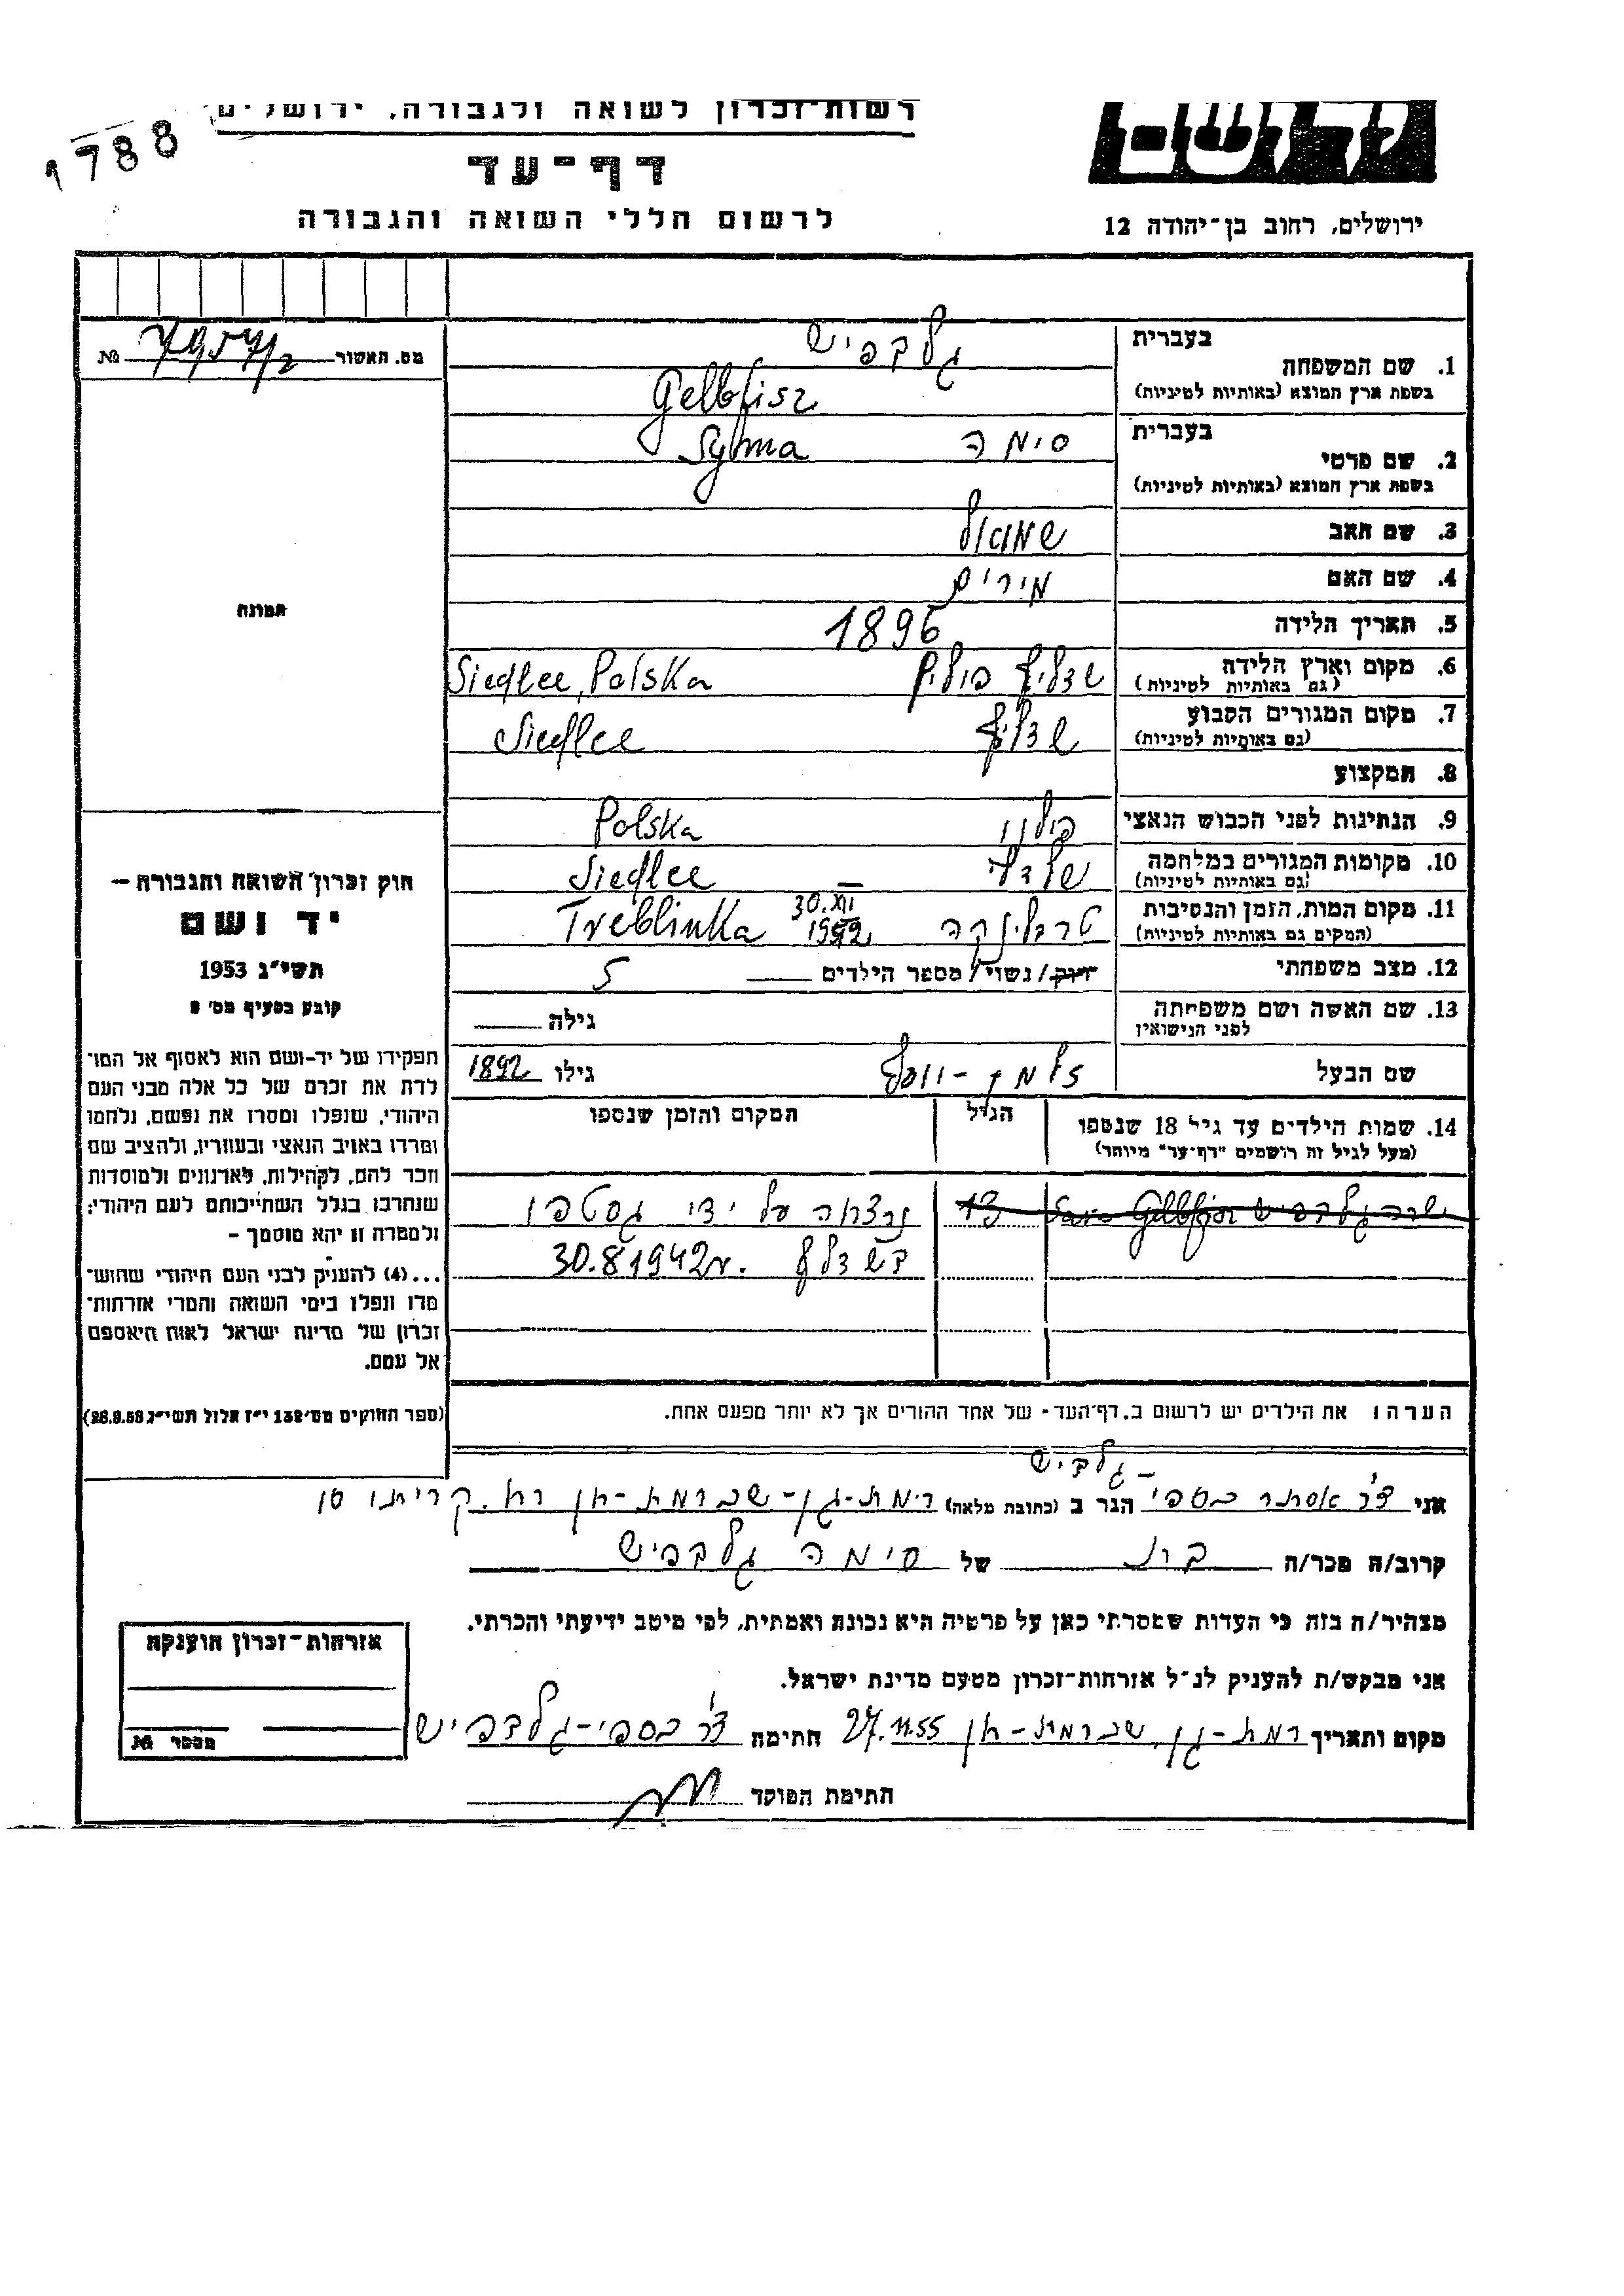 רשות-זכרון לשואה ולגבורה, ירושלים
1788
דף-עד
לרשום חללי השואה והגבורה
ירושלים, רחוב בן-יהודה 12
מס. תאשור №
בעברית
גלבפיש
1. שם המשפחה
בשפת ארץ המוצא (באותיות לטיניות)
Gelbfisz
בעברית
2. שם פרטי
סימה Syma
בשפת ארץ המוצא (באותיות לטיניות)
3. שם האב שמואל
4. שם האם מירים
5. תאריך הלידה 1896
6. מקום וארץ הלידה
(גם באותיות לטיניות)
שדליץ פולין Siedlce, Polska
7. מקום המגורים הקבוע
(גם באותיות לטיניות)
שדליץ Siedlce
8. המקצוע
9. הנתינות לפני הכבוש הנאצי פולני Polska
10. מקומות המגורים במלחמה
(גם באותיות לטיניות)
Siedlce
11. מקום המות, הזמן והנסיבות
(המקום גם באותיות לטיניות)
טרבלינקה 30.XII 1942 Treblinka
12. מצב משפחתי רוק/נשוי/ מספר הילדים 5
13. שם האשה ושם משפחתה
לפני הנישואין
גילה
שם הבעל זלמן-וולף גילו 1892
14. שמות הילדים עד גיל 18 שנספו
(מעל לגיל זה רושמים "דף-עד" מיוחד)
הגיל
המקום והזמן שנספו
שרה גלבפיש Sara Gelbfisz 13 נרצחה על ידי גסטפו
בשדלץ 30.8 1942
הערה: את הילדים יש לרשום ב.דף-העד- של אחד ההורים אך לא יותר מפעם אחת.
תמונה
חוק זכרון השואה והגבורה –
יד ושם
תשי"ג 1953
קובע בסעיף מס' 2
תפקידו של יד-ושם הוא לאסוף אל המו־
לדת את זכרם של כל אלה מבני העם
היהודי, שנפלו ומסרו את נפשם, נלחמו
ומרדו באויב הנאצי ובעוזריו, ולהציב שם
וזכר להם, לקהילות, לארגונים ולמוסדות
שנחרבו בגלל השתייכותם לעם היהודי;
ולמטרה זו יהא מוסמך –
...(4) להעניק לבני העם היהודי שהוש־
מדו ונפלו בימי השואה והמרי אזרחות־
זכרון של מדינת ישראל לאות היאספם
אל עמם.
(ספר החוקים מס' 132 י"ז אלול תשי"ג 28.8.53)
גלבפיש
אני ד"ר אסתר כספי- הגר ב (כתובת מלאה) רמת-גן-שכ רמת-חן רח. קריתי
קרוב/ה מכר/ה בת של סימה גלבפיש
מצהיר/ה בזה כי העדות שמסרתי כאן על פרטיה היא נכונה ואמתית, לפי מיטב ידיעתי והכרתי.
אני מבקש/ת להעניק לנ"ל אזרחות-זכרון מטעם מדינת ישראל.
מקום ותאריך רמת-גן, שכ רמת-חן 27.11.55 חתימה ד"ר כספי-גלבפיש
חתימת הפוקד
אזרחות-זכרון הוענקה
מספר №